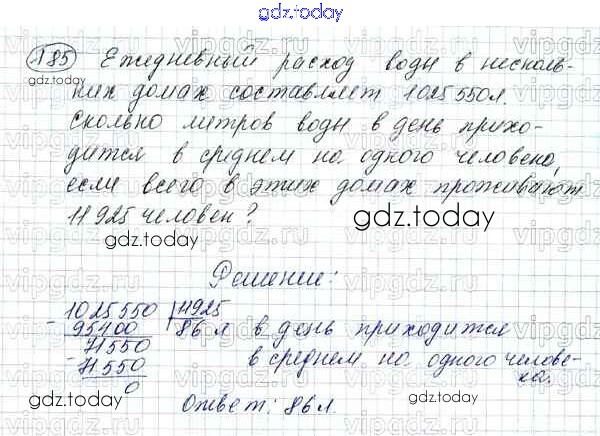 gdz.today
185 Ежедневный расход воды в несколь-
gdz.today
ких домах составляет 1025550л.
Сколько литров воды в день прихо-
дится в среднем на одного человека,
если всего в этих домах проживают
11925 человек?
gdz.today
gdz.today
Решение:
1025550 | 11925
95400 86 л в день приходится
71550 в среднем на одного челове-
71550 ка.
0
gdz.today
Ответ: 86л.
gdz.today